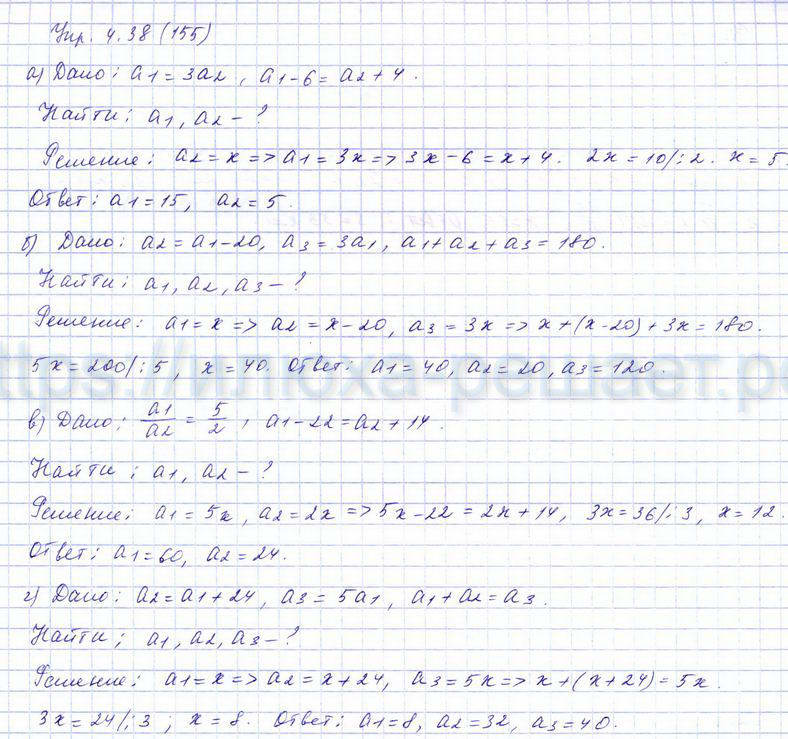 Упр. 4.38 (155)
а) Дано: a1 = 3a2, a1 - 6 = a2 + 4.
Найти: a1, a2 - ?
Решение: a2 = x => a1 = 3x => 3x - 6 = x + 4. 2x = 10/:2. x = 5.
Ответ: a1 = 15, a2 = 5.
б) Дано: a2 = a1 - 20, a3 = 3a1, a1 + a2 + a3 = 180.
Найти: a1, a2, a3 - ?
Решение: a1 = x => a2 = x - 20, a3 = 3x => x + (x - 20) + 3x = 180.
https://илюха-решает.р
5x = 200/:5, x = 40. Ответ: a1 = 40, a2 = 20, a3 = 120.
в) Дано: a1/a2 = 5/2, a1 - 22 = a2 + 14.
Найти: a1, a2 - ?
Решение: a1 = 5x, a2 = 2x => 5x - 22 = 2x + 14, 3x = 36/:3, x = 12.
Ответ: a1 = 60, a2 = 24.
г) Дано: a2 = a1 + 24, a3 = 5a1, a1 + a2 = a3.
Найти: a1, a2, a3 - ?
Решение: a1 = x => a2 = x + 24, a3 = 5x => x + (x + 24) = 5x.
3x = 24/:3; x = 8. Ответ: a1 = 8, a2 = 32, a3 = 40.